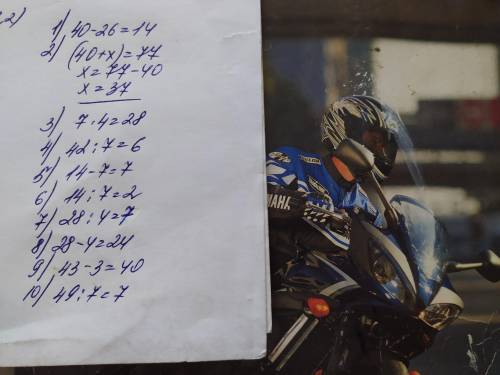 2)
1) 40-26=14
2) (40+x)=77
x=77-40
x=37
3) 7·4=28
4) 42:7=6
5) 14-7=7
6) 14:7=2
7) 28:4=7
8) 28-4=24
9) 43-3=40
10) 49:7=7
YAMAHA